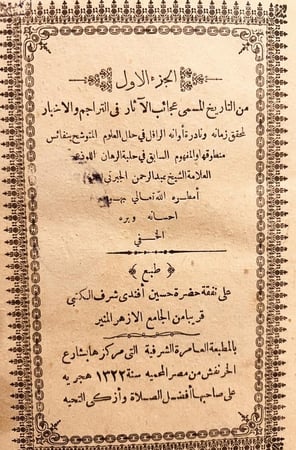 الجزء الاول
من التاريخ المسمى عجائب الآثار فى التراجم والاخبار
لمحقق زمانه ونادرة أوانه الرافل فى حلل العلوم المتوشح بنفائس
منطوقها والمفهوم السابق فى حلبة الرهان
العلامة الشيخ عبد الرحمن الجبرتى
أمطره الله تعالى
احسانه وبره
الحنفى
﴿ طبع ﴾
على نفقة حضرة حسين أفندى شرف الكتبى
قريبا من الجامع الازهر المنير
بالمطبعة العامرة الشرفية التى مركزها بشارع
الخرنفش من مصر المحميه سنة ١٣٢٢ هجريه
على صاحبها أفضل الصلاة وأزكى التحيه